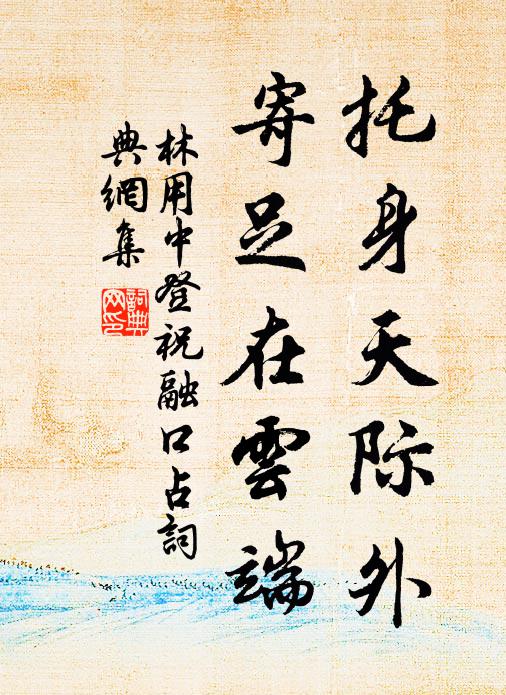 托身天际外
寄足在雲端
林用中登祝融口占詞
典網集
詞典網印